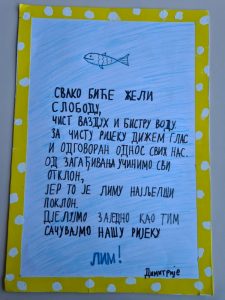 СВАКО БИЋЕ ЖЕЛИ
СЛОБОДУ,
ЧИСТ ВАЗДУХ И БИСТРУ ВОДУ.
ЗА ЧИСТУ РИЈЕКУ ДИЖЕМ ГЛАС
И ОДГОВОРАН ОДНОС СВИХ НАС.
ОД ЗАГАЂИВАЊА УЧИНИМО СВИ
ОТКЛОН,
ЈЕР ТО ЈЕ ЛИМУ НАЈЉЕПШИ
ПОКЛОН.
ДЈЕЛУЈМО ЗАЈЕДНО КАО ТИМ
САЧУВАЈМО НАШУ РИЈЕКУ
ЛИМ!
Димитрије